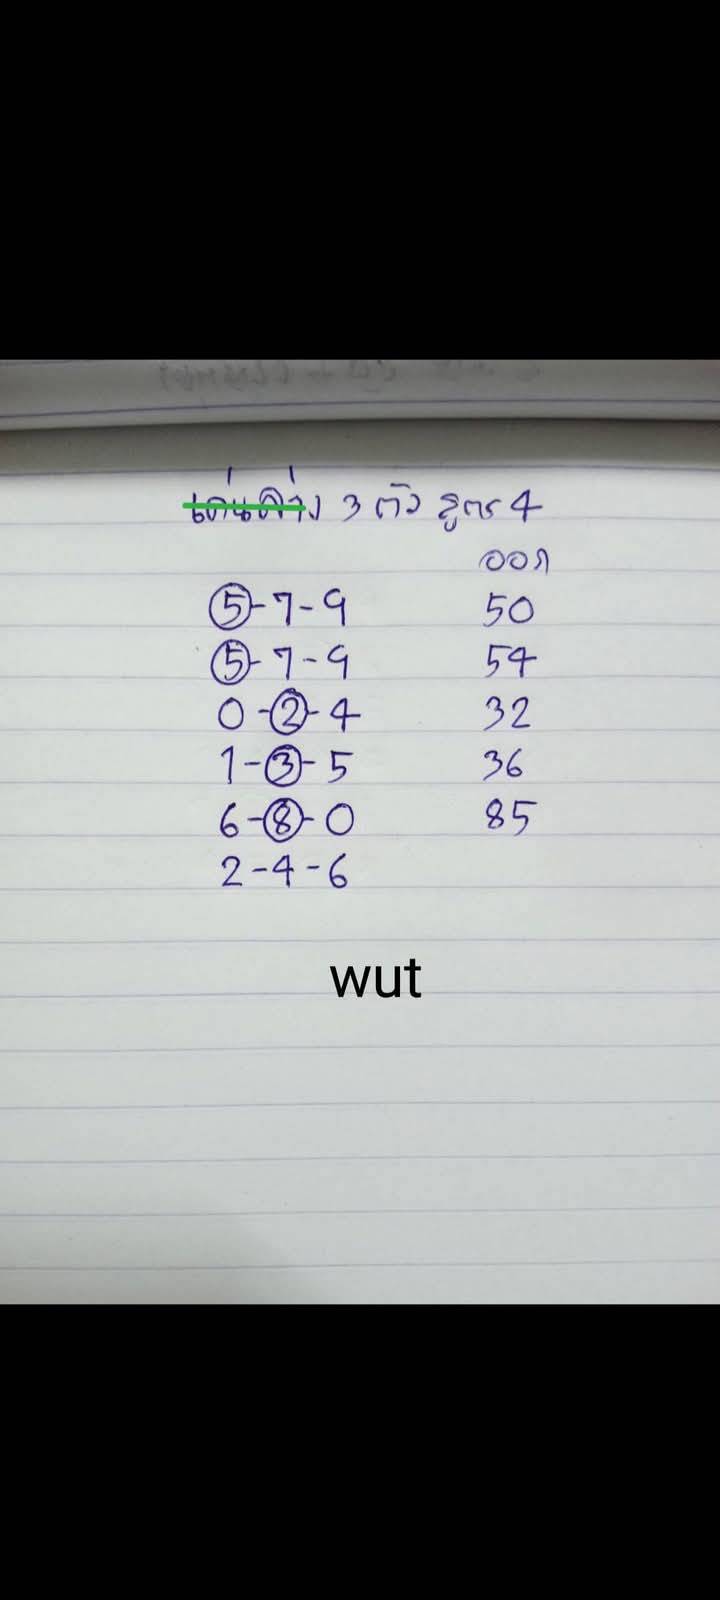 เด่นล่าง 3 ตัว สูตร 4
ออก
5-7-9 50
5-7-9 54
0-2-4 32
1-3-5 36
6-8-0 85
2-4-6
wut